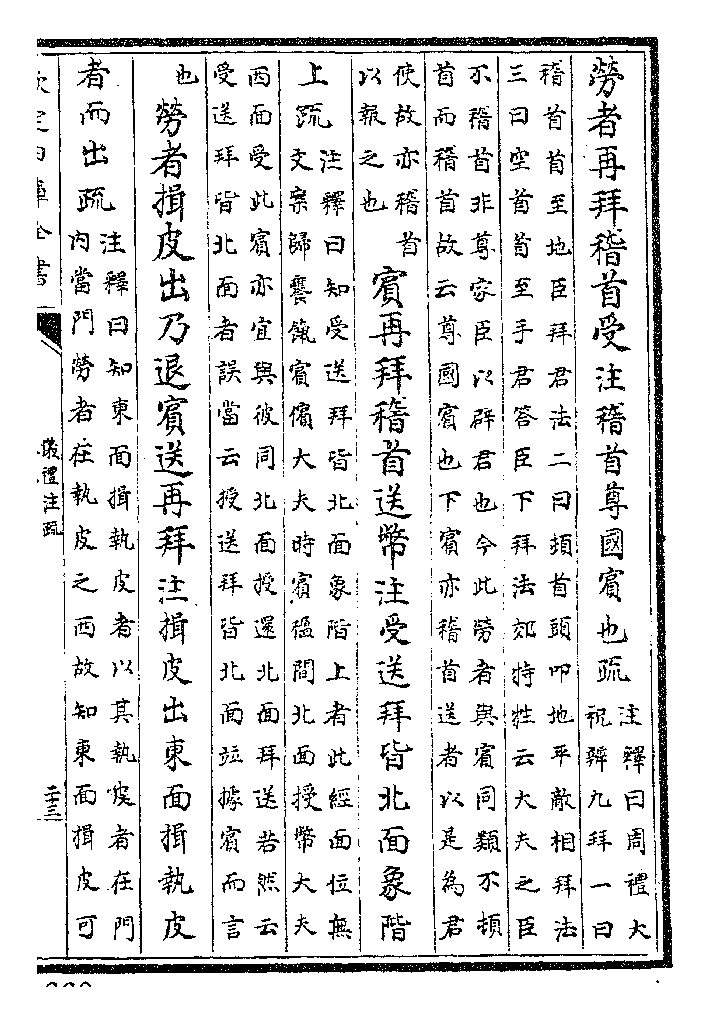 勞者再拜稽首受注稽首尊國賓也疏
注釋曰周禮大
祝辨九拜一曰
稽首首至地臣拜君法二曰頓首頭叩地平敵相拜法
三曰空首首至手君答臣下拜法郊特牲云大夫之臣
不稽首非尊家臣以辟君也今此勞者與賓同類不頓
首而稽首故云尊國賓也下賓亦稽首送者以是為君
使故亦稽首
以報之也
賓再拜稽首送幣注受送拜皆北面象階
上疏
注釋曰知受送拜皆北面象階上者此經面位無
文案歸饔餼賓儐大夫時賓楹間北面授幣大夫
西面受此賓亦宜與彼同北面授還北面拜送若然云
受送拜皆北面者誤當云授送拜皆北面竝據賓而言
也
勞者揖皮出乃退賓送再拜注揖皮出東面揖執皮
者而出疏
注釋曰知東面揖執皮者以其執皮者在門
內當門勞者在執皮之西故知東面揖皮可
欽定四庫全書
儀禮注疏
二十三